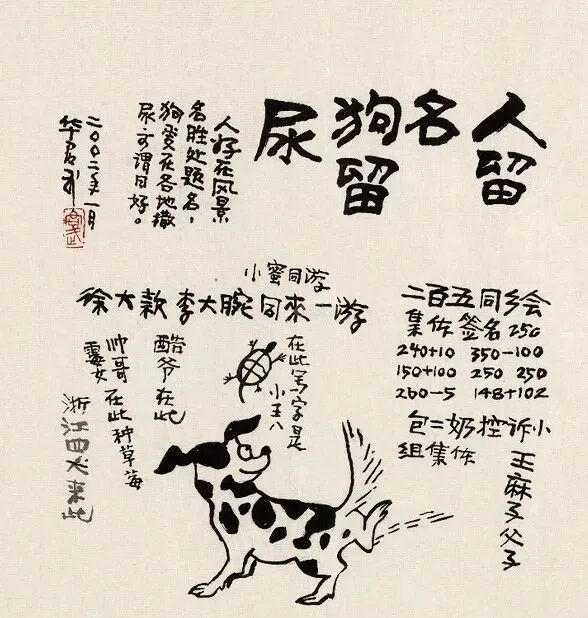 人留
名
狗留
尿
人好在风景
名胜处题名，
狗爱在各地撒
尿，可谓同好。
二〇〇二年一月
华君武
小蜜同游
徐大款 李大腕同来一游
二百五同乡会
集体签名 250
240+10 350-100
150+100 250 250
260-5 148+102
包二奶控诉小
组集体
王麻子父子
在此写字是
小王八
酷爷在此
帅哥
靓女
在此种草莓
浙江四犬来此